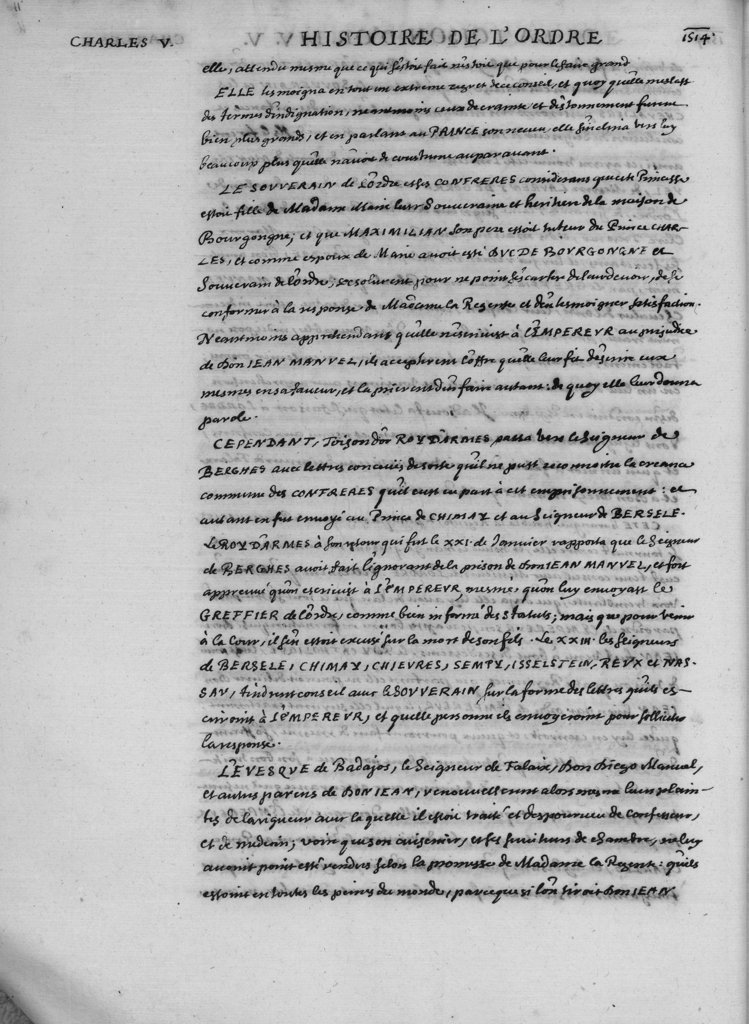 CHARLES V. HISTOIRE DE L'ORDRE 1514
elle, attendu mesme que ce qui s'estoit fait n'estoit que pour le faire grand
ELLE tesmoigna en tout un extreme regret de ce conseil, et quoy qu'elle meslast
des termes d'indignation, neantmoins ceux de crainte et d'estonnement furent
bien plus grands, et en parlant au PRINCE son neveu elle s'inclina vers luy
beaucoup plus qu'elle n'avoit de coustume auparavant.
LE SOUVERAIN de l'ordre et ses CONFRERES considerans que cete Princesse
estoit fille de Madame Marie leur Souveraine et heritiere de la maison de
Bourgongne, et que MAXIMILIAN son pere estoit tuteur du Prince CHAR-
LES, et comme espoux de Marie avoit esté DUC DE BOURGONGNE et
Souverain de l'ordre, resolurent pour ne point s'escarter de leur devoir, de se
conformer à la response de Madame la Regente et d'en tesmoigner satisfaction.
Neantmoins apprehendans qu'elle n'escrivist à L'EMPEREUR au prejudice
de Don IEAN MANUEL, ils accepterent l'offre qu'elle leur fit d'escrire eux
mesmes en sa faveur, et la prierent d'en faire autant: de quoy elle leur donna
parole.
CEPENDANT, Toison d'or ROY D'ARMES passa vers le Seigneur de
BERGHES avec lettres conceues de sorte qu'il ne pust reconnoitre la creance
commune des CONFRERES qu'il eust eu part à cet emprisonnement: et
autant en fut envoyé au Prince de CHIMAY et au Seigneur de BERSELE.
Le ROY D'ARMES à son retour qui fut le XXI. de Janvier rapporta que le Seigneur
de BERGHES avoit fait l'ignorant de la prison de Don IEAN MANUEL, et fort
appreuvé qu'on escrivist à L'EMPEREUR, mesme qu'on luy envoyast le
GREFFIER de l'ordre, comme bien informé des Statuts; mais que pour venir
à la Cour, il s'en estoit excusé sur la mort de son fils. Le XXIII. les Seigneurs
de BERSELE, CHIMAY, CHIEVRES, SEMPY, ISSELSTEIN, REUX et NAS-
SAU, tindrent conseil avec le SOUVERAIN, sur la forme des lettres qu'ils es-
criroient à L'EMPEREUR, et quelle personne ils envoyeroient pour solliciter
la response.
L'EVESQUE de Badajos, le Seigneur de Falaix, Don Diego Manuel,
et autres parens de DON IEAN, renouvellerent alors mesme leurs plain-
tes de la rigueur avec laquelle il estoit traité et despourveu de Confesseur,
et de medecin; voire que son cuisinier, et ses serviteurs de chambre, ne luy
avoient point esté rendus selon la promesse de Madame la Regente: qu'ils
estoient en toutes les peines du monde, parce que si l'on tiroit Don IEAN